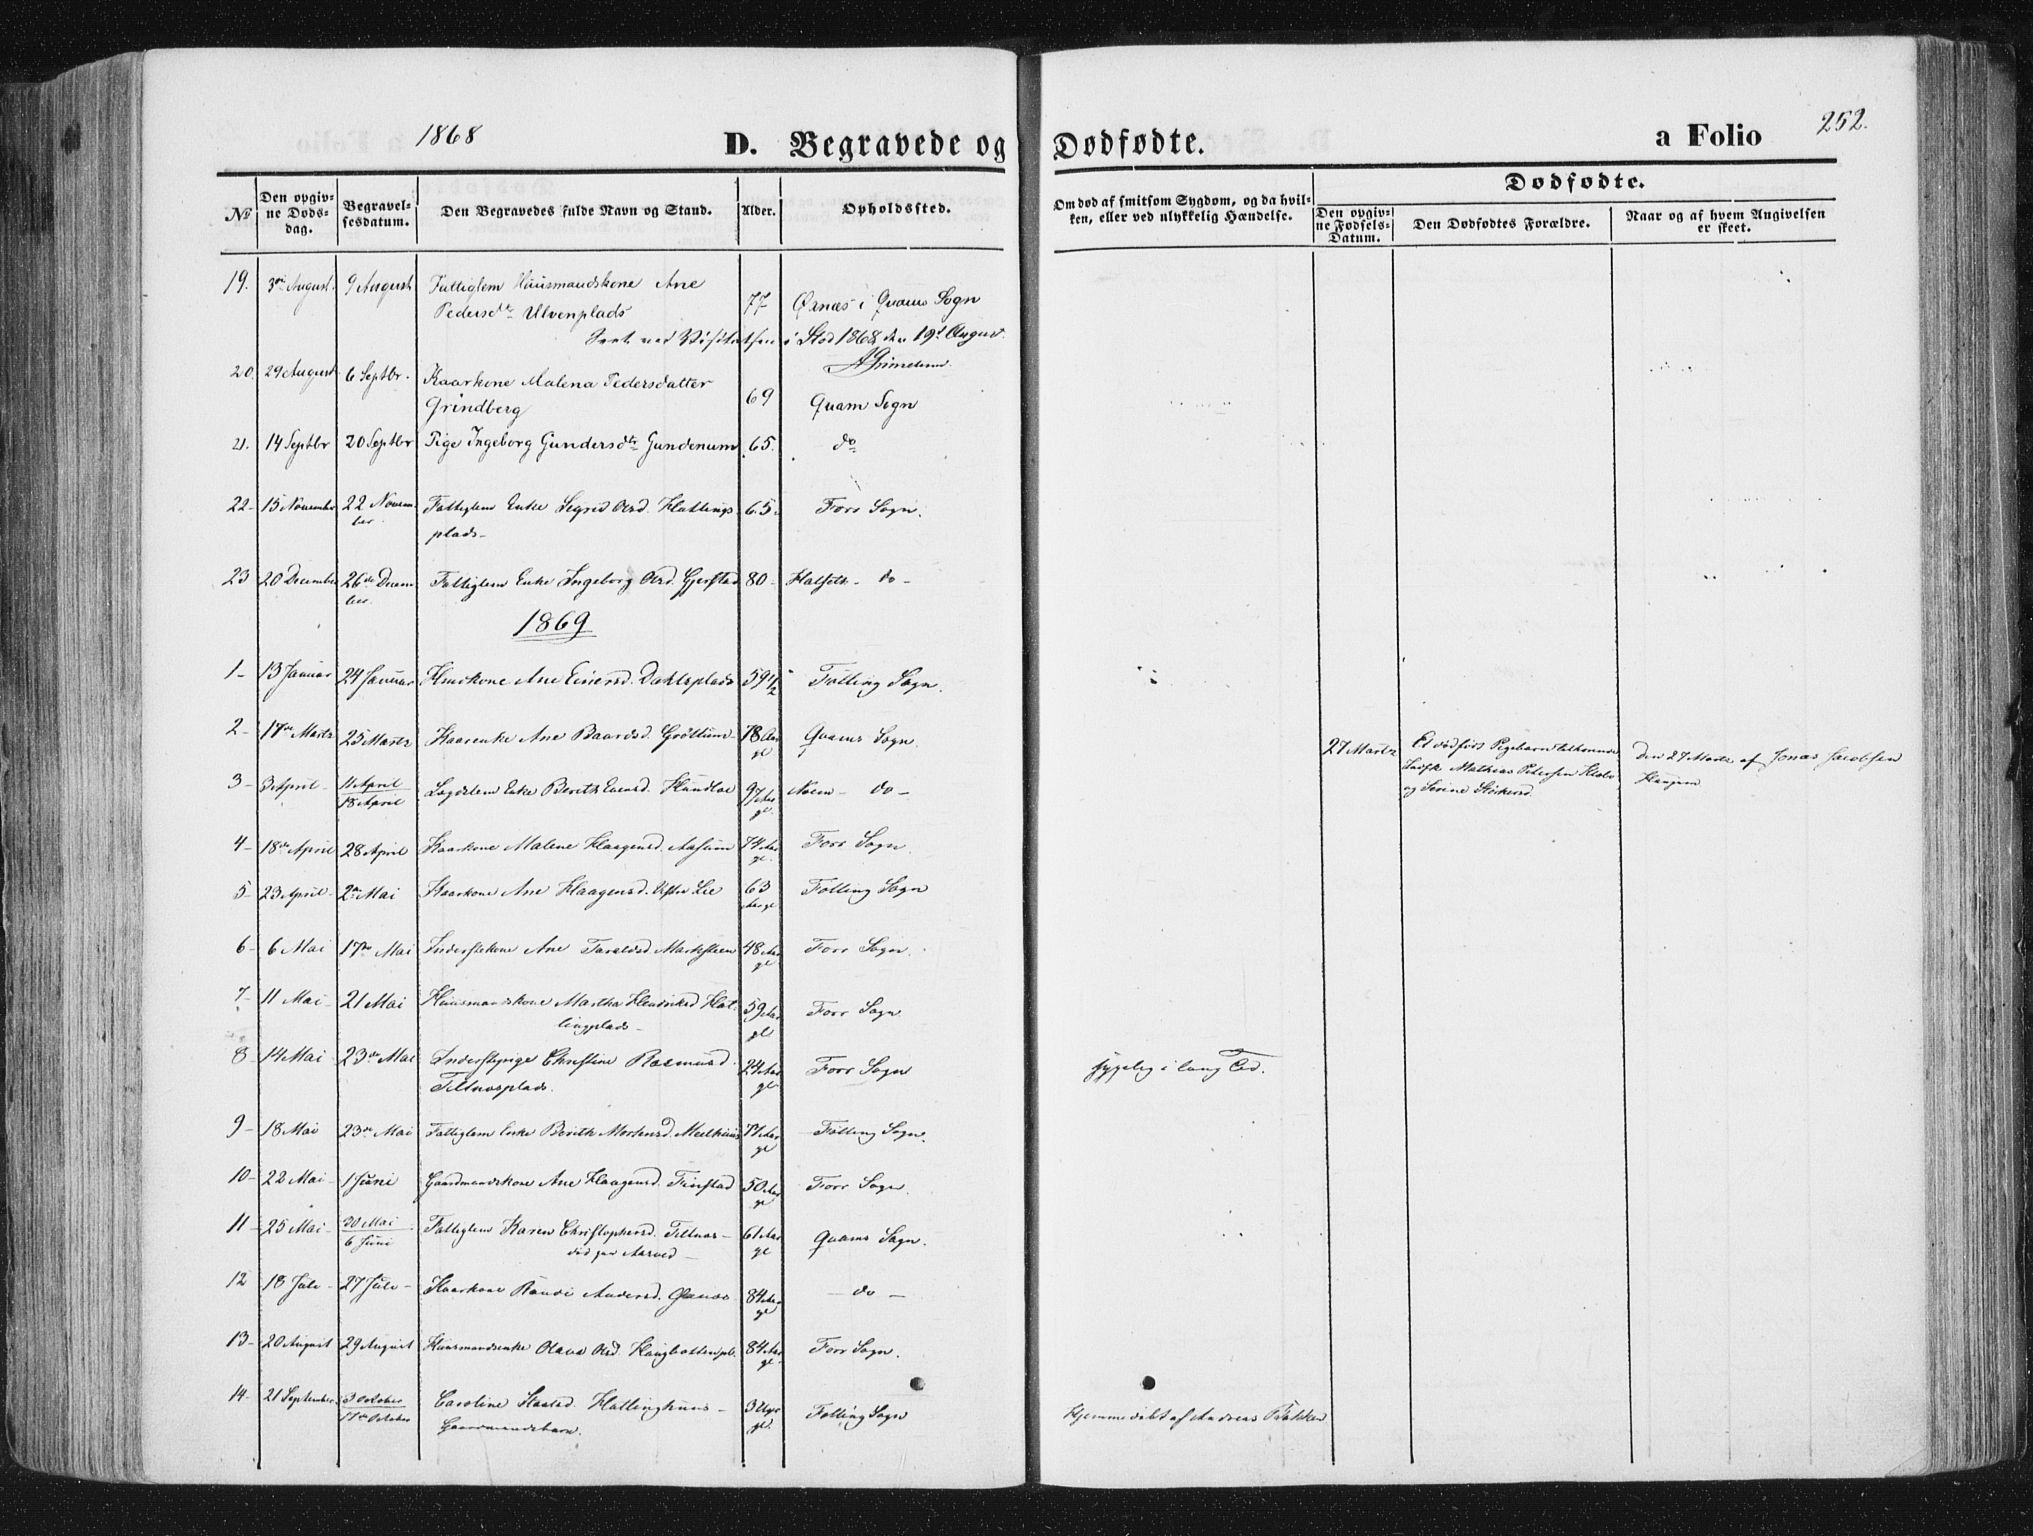 1868 D. Begravede og Dødfødte. a Folio 252.
Dødfødte.
№ Den opgivne Dødsdag. Begravelsesdatum. Den Begravedes fulde Navn og Stand. Alder. Opholdssted. Om død af smitsom Sygdom, og da hvilken, eller ved ulykkelig Hændelse. Den opgivne Fødsels-Datum. Den Dødfødtes Forældre. Naar og af hvem Angivelsen er skeet.
19. 3die August 9 August Fattiglem Huusmandskone Ane
Pedersdtr Ulvenplads 77 Ørnæs i Quams Sogn
Seet ved Visitatsen i Stod 1868 den 19d August
A Grimelund
20. 29 August 6 Septbr. Kaarkone Malena Pedersdatter
Grindberg 69 Quam Sogn
21. 14 Septbr 20 Septbr Pige Ingeborg Gundersdtr Gundenum 65. do
22- 15 November 22 November Fattiglem Enke Sigrid Olsd. Hattlings 65. Forr Sogn.
plads-
23 20 December 26de December Fattiglem Enke Ingeborg Olsd. Gjerstad 80- Halfoth- do-
1869
1- 13 Januar 24 Januar Huuskone Ane Einersd. Dahlsplads 59 1/2 Følling Sogn.
2- 17de Martz 25 Martz Kaarenke Ane Baardsd. Grøttum- 78 Aar gl Quams Sogn. 27 Martz Et dødfødt Pigebarn tilhørende Den 27 Martz af Jonas Jacobsen
3- 3 April- 11 April 18 April Lægdslem Enke Berith Evensd. Hundloe 97 Aar gl. do- Mathias Petersen Haugen
4- 18de April 28 April Kaarkone Malene Haagensd. Aasum 74 Aar gl. Forr Sogn.
5- 23 April- 2den Mai Kaarkone Ane Haagensd. Lie 63 Aar gl Følling Sogn
6- 6 Mai 17de Mai Inderstkone Ane Taraldsd. 48 Aar gl Forr Sogn.
7- 11 Mai- 21 Mai Huusmandskone Martha Henriksd Hatlingplads- 59 Aar gl Forr Sogn
8- 14 Mai 23de Mai Inderstpige Christine Rasmusd. 24 Aar gl Forr Sogn sygelig i lang Tid.
Tiltnesplads.
9- 18 Mai 23de Mai Fattiglem Enke Berith Mortensd. 77 Aar gl Følling Sogn.
10- 22 Mai- 1 Juni Gaardmandskone Ane Haagensd. Finstad 50 Aar gl Forr Sogn.
11- 25 Mai- 30 Mai 6 Juni Fattiglem Karen Christophersd. Tiltnes- 61 Aar gl Quams Sogn.
12 18 Juli- 27 Juli- Kaarkone Randi Andersd. 84 Aar gl - do -
13- 20 August 29 August Huusmandsenke Olava Olsd. Haugbottenpl. 84 Aar gl- Forr Sogn.
14- 21 September 3 October 17de October Caroline Hallinghuus- 3 Uger gl. Følling Sogn Hjemmedøbt af Andreas Bakken
Gaardmandsbarn.